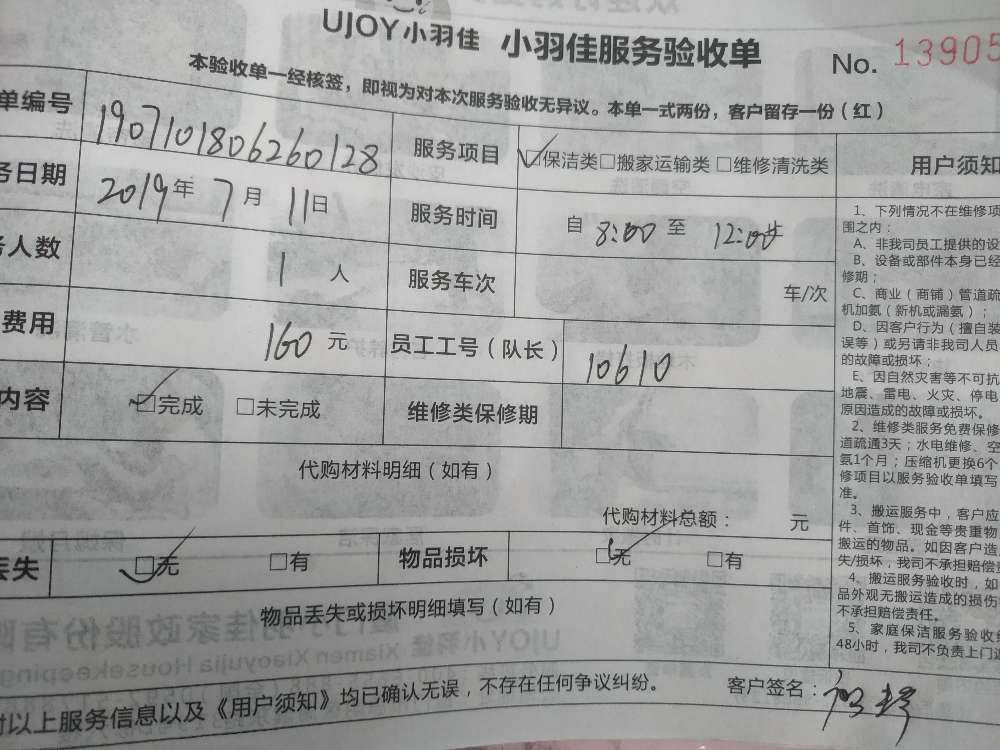 UJOY小羽佳 小羽佳服务验收单 No. 13905
本验收单一经核签，即视为对本次服务验收无异议。本单一式两份，客户留存一份（红）
单编号 1907101806260128 服务项目 ☑保洁类□搬家运输类 □维修清洗类
务日期 2019年 7月 11日 服务时间 自 8:00 至 12:00
务人数 1 人 服务车次 车/次
费用 160 元 员工工号（队长） 10610
内容 ☑完成 □未完成 维修类保修期
代购材料明细（如有）
代购材料总额： 元
丢失 ☑无 □有 物品损坏 ☑无 □有
物品丢失或损坏明细填写（如有）
对以上服务信息以及《用户须知》均已确认无误，不存在任何争议纠纷。 客户签名：
用户须知
1、下列情况不在维修项
围之内：
A、非我司员工提供的设
B、设备或部件本身已经
修期；
C、商业（商铺）管道疏
机加氨（新机或漏氨）；
D、因客户行为（擅自装
误等）或另请非我司人员
的故障或损坏；
E、因自然灾害等不可抗
地震、雷电、火灾、停电
原因造成的故障或损坏。
2、维修类服务免费保修
道疏通3天；水电维修、空
氨1个月；压缩机更换6个
修项目以服务验收单填写
准。
3、搬运服务中，客户应
件、首饰、现金等贵重物
搬运的物品。如因客户造
失/损坏，我司不承担赔偿责
4、搬运服务验收时，如
品外观无搬运造成的损伤
不承担赔偿责任。
5、家庭保洁服务验收
48小时，我司不负责上门